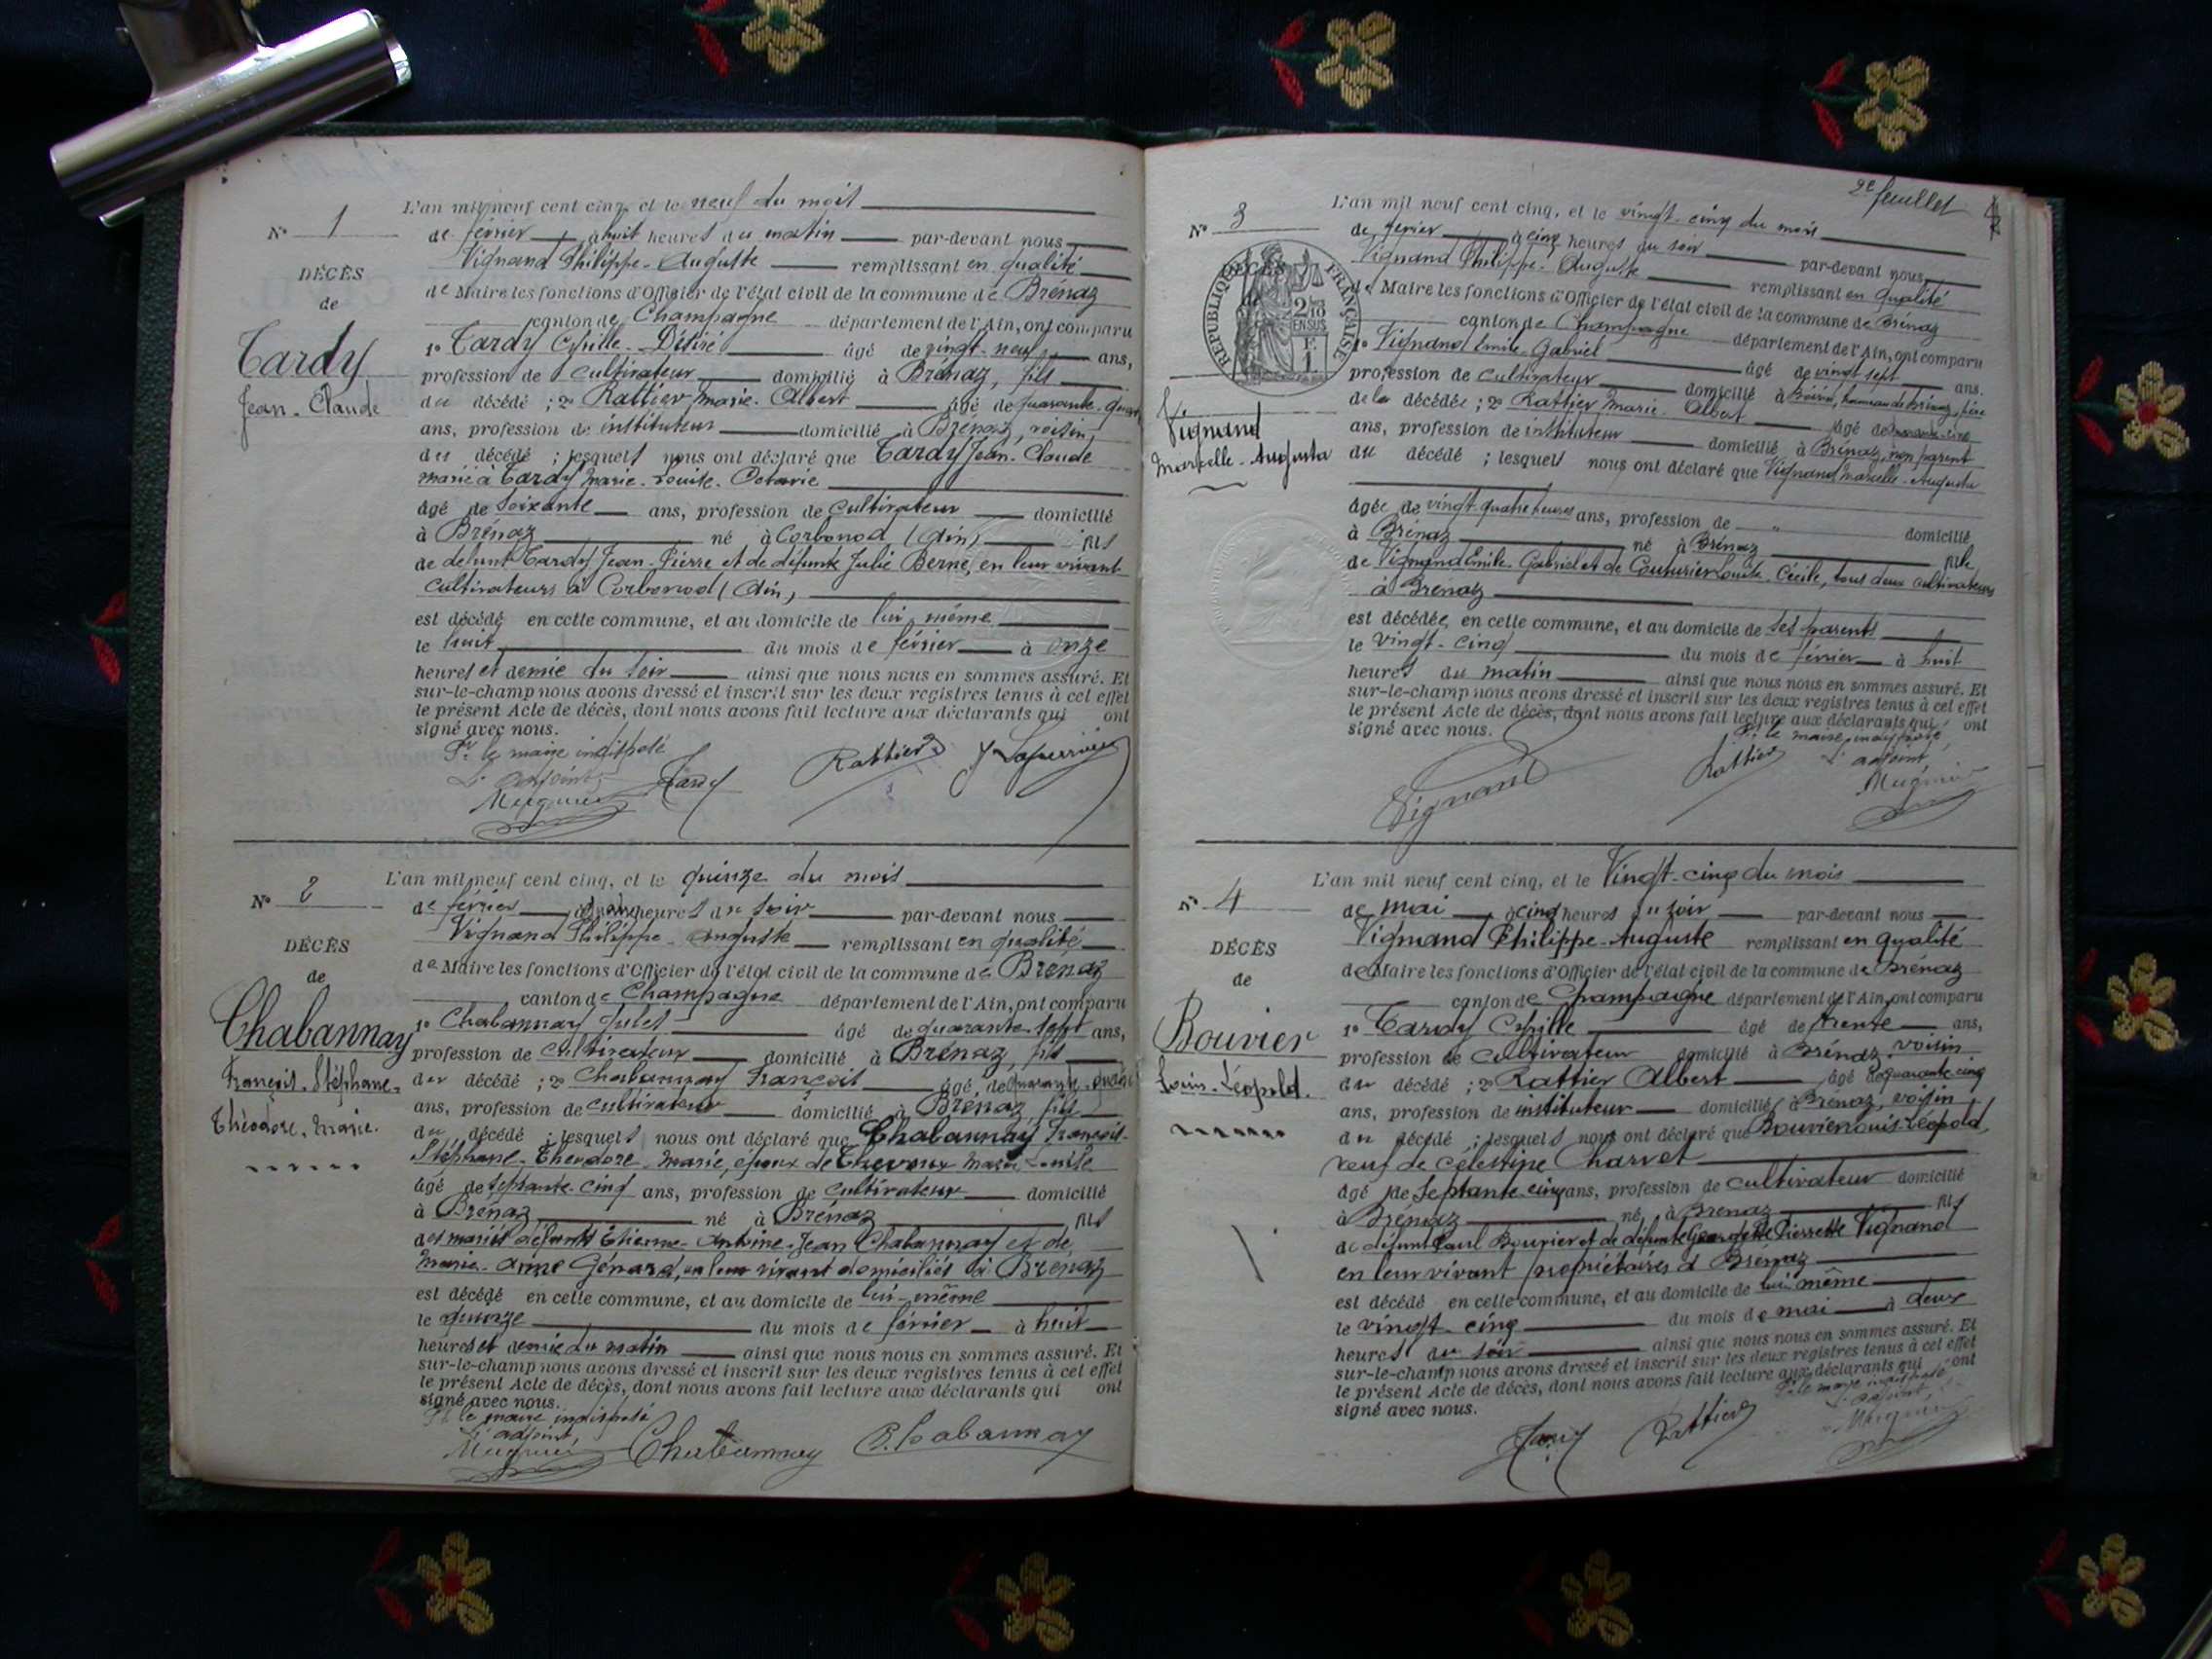 N° 1
DÉCÈS
de
Tardy
Jean-Claude
L'an mil neuf cent cinq, et le neuf du mois
de février à huit heures du matin par-devant nous
Vignand Philippe-Auguste remplissant en qualité
de Maire les fonctions d'Officier de l'état civil de la commune de Brénaz
canton de Champagne département de l'Ain, ont comparu
1° Tardy Cyrille-Désiré âgé de vingt-neuf ans,
profession de cultivateur domicilié à Brénaz, fils
du décédé ; 2° Rattier Marie-Albert âgé de quarante-quatre
ans, profession de instituteur domicilié à Brénaz, voisin,
du décédé ; lesquels nous ont déclaré que Tardy Jean-Claude
marié à Tardy Marie-Louise-Octavie
âgé de soixante ans, profession de cultivateur domicilié
à Brénaz né à Corbonod (Ain) fils
de défunt Tardy Jean-Pierre et de défunte Julie Berne, en leur vivant
cultivateurs à Corbonod (Ain)
est décédé en cette commune, et au domicile de lui-même
le huit du mois de février à onze
heures et demie du soir ainsi que nous nous en sommes assuré. Et
sur-le-champ nous avons dressé et inscrit sur les deux registres tenus à cet effet
le présent Acte de décès, dont nous avons fait lecture aux déclarants qui ont
signé avec nous.
Pr le maire indisposé
L'adjoint,
Mugnier Tardy Rattier
N° 2
DÉCÈS
de
Chabannay
François-Stéphane-
Théodore-Marie.
L'an mil neuf cent cinq, et le quinze du mois
de février à heures du soir par-devant nous
Vignand Philippe-Auguste remplissant en qualité
de Maire les fonctions d'Officier de l'état civil de la commune de Brénaz
canton de Champagne département de l'Ain, ont comparu
1° Chabannay Jules âgé de quarante-sept ans,
profession de cultivateur domicilié à Brénaz, fils
du décédé ; 2° Chabannay François âgé de quarante-quatre
ans, profession de cultivateur domicilié à Brénaz, fils
du décédé ; lesquels nous ont déclaré que Chabannay François-
Stéphane-Théodore-Marie, époux de Marie-Louise
âgé de septante-cinq ans, profession de cultivateur domicilié
à Brénaz né à Brénaz fils
des mariés défunts Etienne-Antoine-Jean Chabannay et de
Marie-Anne Génard, en leur vivant domiciliés à Brénaz
est décédé en cette commune, et au domicile de lui-même
le quinze du mois de février à huit
heures et demie du matin ainsi que nous nous en sommes assuré. Et
sur-le-champ nous avons dressé et inscrit sur les deux registres tenus à cet effet
le présent Acte de décès, dont nous avons fait lecture aux déclarants qui ont
signé avec nous.
Pr le maire indisposé
L'adjoint,
Mugnier Chabannay Chabannay
2e feuillet
N° 3
DÉCÈS
de
RÉPUBLIQUE FRANÇAISE
2/10
EN SUS
F.
1
Vignand
Marcelle-Augusta
L'an mil neuf cent cinq, et le vingt-cinq du mois
de février à cinq heures du soir par-devant nous
Vignand Philippe-Auguste remplissant en qualité
de Maire les fonctions d'Officier de l'état civil de la commune de Brénaz
canton de Champagne département de l'Ain, ont comparu
1° Vignand Emile-Gabriel âgé de vingt-sept ans.
profession de cultivateur domicilié à hameau de Brénaz, père
de la décédée ; 2° Rattier Marie-Albert âgé de quarante-cinq
ans, profession de instituteur domicilié à Brénaz, non parent
du décédé ; lesquels nous ont déclaré que Vignand Marcelle-Augusta
âgée de vingt-quatre heures ans, profession de " domicilié
à Brénaz né à Brénaz fille
de Vignand Emile-Gabriel et de Couturier Louise-Cécile, tous deux cultivateurs
à Brénaz
est décédée, en cette commune, et au domicile de ses parents
le vingt-cinq du mois de février à huit
heures du matin ainsi que nous nous en sommes assuré. Et
sur-le-champ nous avons dressé et inscrit sur les deux registres tenus à cet effet
le présent Acte de décès, dont nous avons fait lecture aux déclarants qui ont
signé avec nous.
Pr le maire indisposé,
L'adjoint,
Vignand Rattier Mugnier
N° 4
DÉCÈS
de
Bouvier
Louis-Léopold.
L'an mil neuf cent cinq, et le Vingt-cinq du mois
de mai à cinq heures du soir par-devant nous
Vignand Philippe-Auguste remplissant en qualité
de Maire les fonctions d'Officier de l'état civil de la commune de Brénaz
canton de Champagne département de l'Ain, ont comparu
1° Tardy Cyrille âgé de trente ans,
profession de cultivateur domicilié à Brénaz, voisin
du décédé ; 2° Rattier Albert âgé de quarante-cinq
ans, profession de instituteur domicilié à Brénaz, voisin
du décédé ; lesquels nous ont déclaré que Bouvier Louis-Léopold,
veuf de Célestine Charvet
âgé de septante-cinq ans, profession de cultivateur domicilié
à Brénaz né à Brénaz fils
de défunt Paul Bouvier et de défunte Georgette Pierrette Vignand
en leur vivant propriétaires à Brénaz
est décédé en cette commune, et au domicile de lui-même
le vingt-cinq du mois de mai à deux
heures du soir ainsi que nous nous en sommes assuré. Et
sur-le-champ nous avons dressé et inscrit sur les deux registres tenus à cet effet
le présent Acte de décès, dont nous avons fait lecture aux déclarants qui ont
signé avec nous.
Pr le maire indisposé
L'adjoint,
Tardy Rattier Mugnier